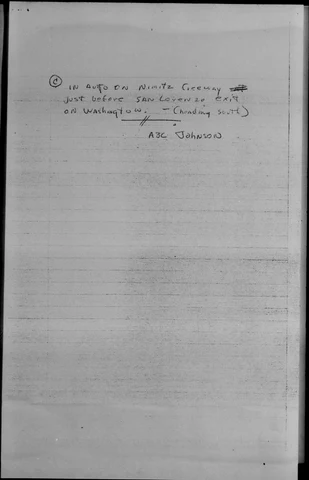 Ⓒ IN AUTO ON NIMITZ Freeway
just before SAN Lorenzo exit
ON Washington. - (heading south)
A3C JOHNSON